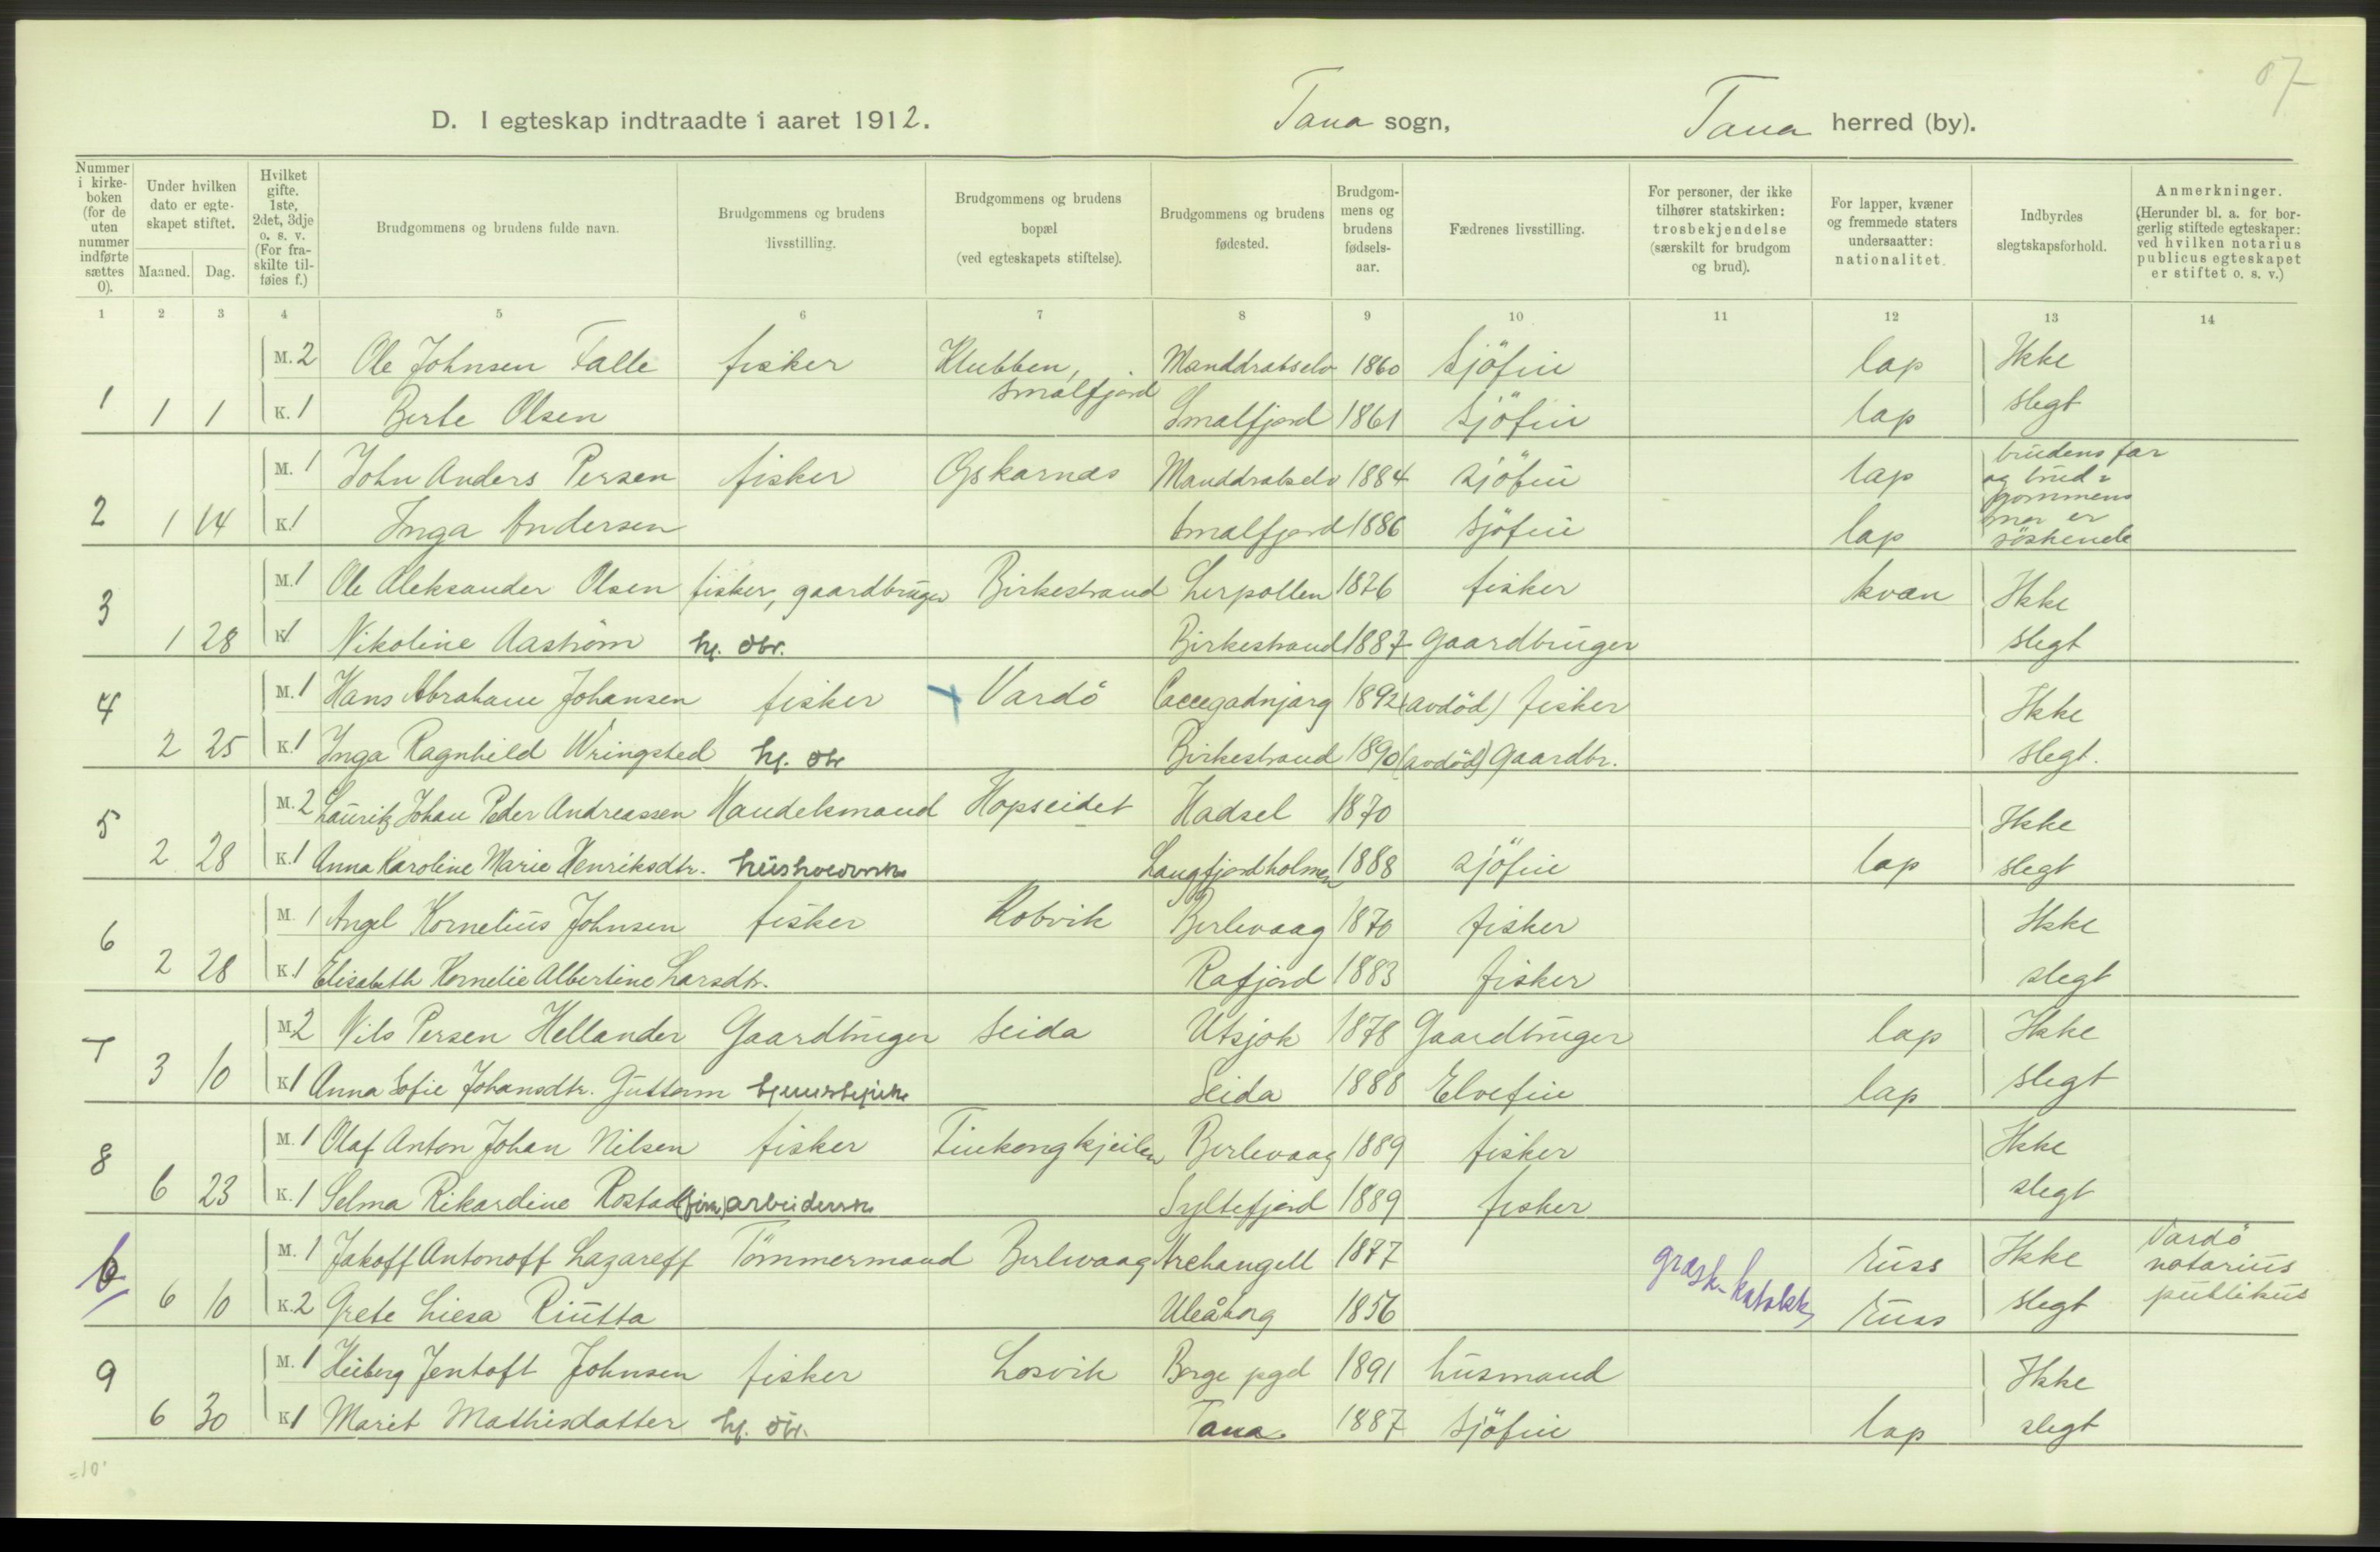 07
D. I egteskap indtraadte i aaret 1912. Tana sogn, Tana herred (by).
Nummer i kirke-boken (for de uten nummer indførte sættes 0).
Under hvilken dato er egte-skapet stiftet.
Maaned. Dag.
Hvilket gifte. 1ste, 2det, 3dje o. s. v. (For fra-skilte til-føies f.)
Brudgommens og brudens fulde navn.
Brudgommens og brudens livsstilling.
Brudgommens og brudens bopæl (ved egteskapets stiftelse).
Brudgommens og brudens fødested.
Brudgom-mens og brudens fødsels-aar.
Fædrenes livsstilling.
For personer, der ikke tilhører statskirken: trosbekjendelse (særskilt for brudgom og brud).
For lapper, kvæner og fremmede staters undersaatter: nationalitet.
Indbyrdes slegtskapsforhold.
Anmerkninger. (Herunder bl. a. for bor-gerlig stiftede egteskaper: ved hvilken notarius publicus egteskapet er stiftet o. s. v.)
1 2 3 4 5 6 7 8 9 10 11 12 13 14
M. 2 Ole Johnsen Falle fisker Klubben, Smalfjord Manddratselv 1860 Sjöfin lap Ikke
1 1 1 K. 1 Berte Olsen Smalfjord 1861 Sjöfin lap slegt
M. 1 John Anders Persen fisker Gjskarnæs Manddratselv 1884 Sjöfin lap brudens far og brud-gommens
2 1 14 K. 1 Inga Andersen Smalfjord 1886 Sjöfin lap mor er söskende
3 M. 1 Ole Aleksander Olsen fisker, gaardbruger Birkestrand Lerpollen 1876 fisker kvæn Ikke
1 28 K. 1 Nikoline Aaström hj. dtr. Birkestrand 1887 Gaardbruger slegt
4 M. 1 Hans Abraham Johansen fisker Vardö 1892 (avdöd) fisker Ikke
2 25 K. 1 Inga Ragnhild Wringsted hj. dtr Birkestrand 1890 (avdöd) Gaardbr. slegt.
5 M. 2 Lauritz Johan Peder Andreassen Handelsmand Hopseidet Hadsel 1870 Ikke
2 28 K. 1 Anna Karoline Marie Henriksdtr. Langfjordholmen 1888 Sjöfin lap slegt
6 M. 1 Angel Kornelius Johnsen fisker Kobvik Berlevaag 1870 fisker Ikke
2 28 K. 1 Elisabeth Kornelie Albertine Larsdtr. Rafjord 1883 fisker slegt
7 M. 2 Nils Persen Hellander Gaardbruger Seida Utsjok 1878 Gaardbruger lap Ikke
3 10 K. 1 Anna Sofie Johansdtr. Guttorm Seida 1888 Elvefin lap slegt
8 M. 1 Olaf Anton Johan Nilsen fisker Finkongkjeilen Berlevaag 1889 fisker Ikke
6 23 K. 1 Selma Rikardine Rostad arbeiderske Syltefjord 1889 fisker slegt
M. 1 Jakoff Antonoff Lazareff Tömmermand Berlevaag Archangell 1877 græsk-katolsk russ Ikke Vardö notarius
6 10 K. 2 Grete Liesa Riutta Uleåborg 1856 russ slegt publikus
9 M. 1 Heiberg Jentoft Johnsen fisker Losvik Borge pgd 1891 husmand Ikke
6 30 K. 1 Marit Mathisdatter hj. dtr. Tana 1887 Sjöfin lap slegt
=10